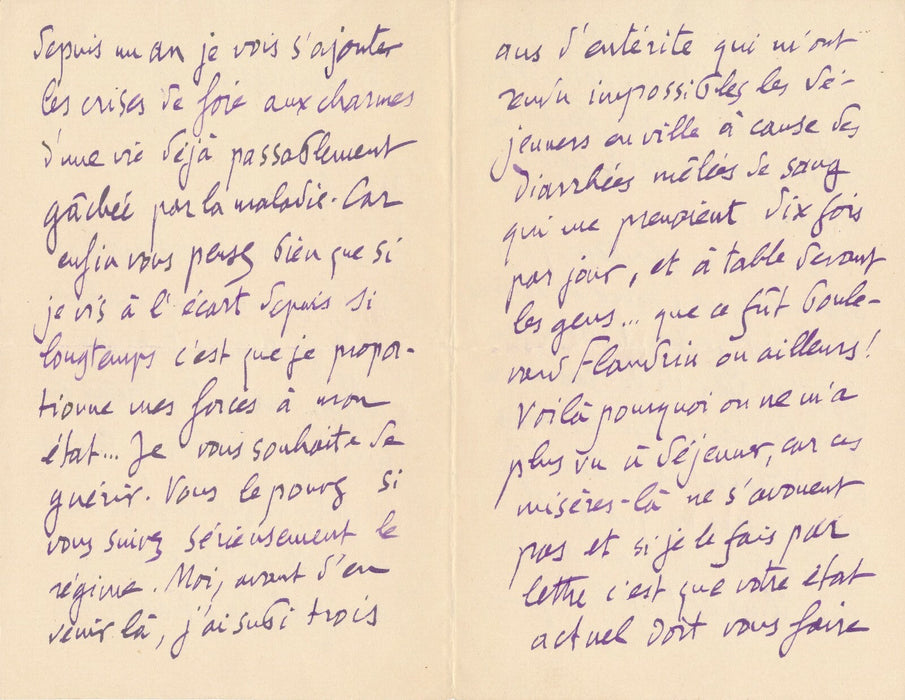 depuis un an je vois s'ajouter
les crises de foie aux charmes
d'une vie déjà passablement
gâchée par la maladie. Car
enfin vous pensez bien que si
je vis à l'écart depuis si
longtemps c'est que je propor-
tionne mes forces à mon
état... Je vous souhaite de
guérir. Vous le pouvez si
vous suivez sérieusement le
régime. Moi, avant d'en
venir là, j'ai subi trois
ans d'entérite qui m'ont
rendu impossibles les dé-
jeuners en ville à cause des
diarrhées mêlées de sang
qui me prenaient dix fois
par jour, et à table devant
les gens... que ce fût boule-
vard Flandrin ou ailleurs!
Voilà pourquoi on ne m'a
plus vu à déjeuner, car ces
misères-là ne s'avouent
pas et si je le fais par
lettre c'est que votre état
actuel doit vous faire